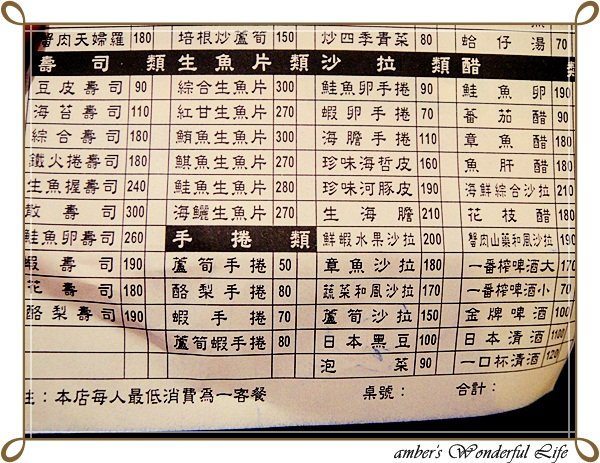 蟹肉天婦羅 180 培根炒蘆筍 150 炒四季青菜 80 蛤仔湯 70
壽司類 生魚片類 沙拉類 醋
豆皮壽司 90 綜合生魚片 300 鮭魚卵手捲 90 鮭魚卵 190
海苔壽司 110 紅甘生魚片 270 蝦卵手捲 70 蕃茄醋 90
綜合壽司 180 鮪魚生魚片 300 海膽手捲 110 章魚醋 180
鐵火捲壽司 180 旗魚生魚片 270 珍味海哲皮 160 魚肝醋
生魚握壽司 240 鮭魚生魚片 280 珍味河豚皮 190 海鮮綜合沙拉 210
散壽司 300 海鱺生魚片 270 生海膽 210 花枝醋 180
鮭魚卵壽司 260 手捲類 鮮蝦水果沙拉 200 蟹肉山藥和風沙拉 190
蝦壽司 190 蘆筍手捲 50 章魚沙拉 180 一番榨啤酒大 170
花壽司 180 酪梨手捲 80 蔬菜和風沙拉 170 一番榨啤酒小 70
酪梨壽司 190 蝦手捲 70 蘆筍沙拉 150 金牌啤酒 100
蘆筍蝦手捲 80 日本黑豆 100 日本清酒 1100
泡菜 90 一口杯清酒 120
注：本店每人最低消費為一客餐 桌號： 合計：
amber's Wonderful Life